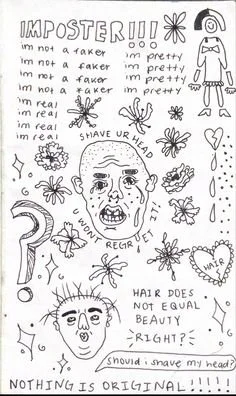 IMPOSTER!!!
im not a faker im pretty
im not a faker im pretty
im not a faker im pretty
im not a faker im pretty
im real
im real
im real
im real
SHAVE UR HEAD
U WONT REGRET IT!
HAIR DOES
NOT EQUAL
BEAUTY
RIGHT?
should i shave my head?
NOTHING IS ORIGINAL!!!!!